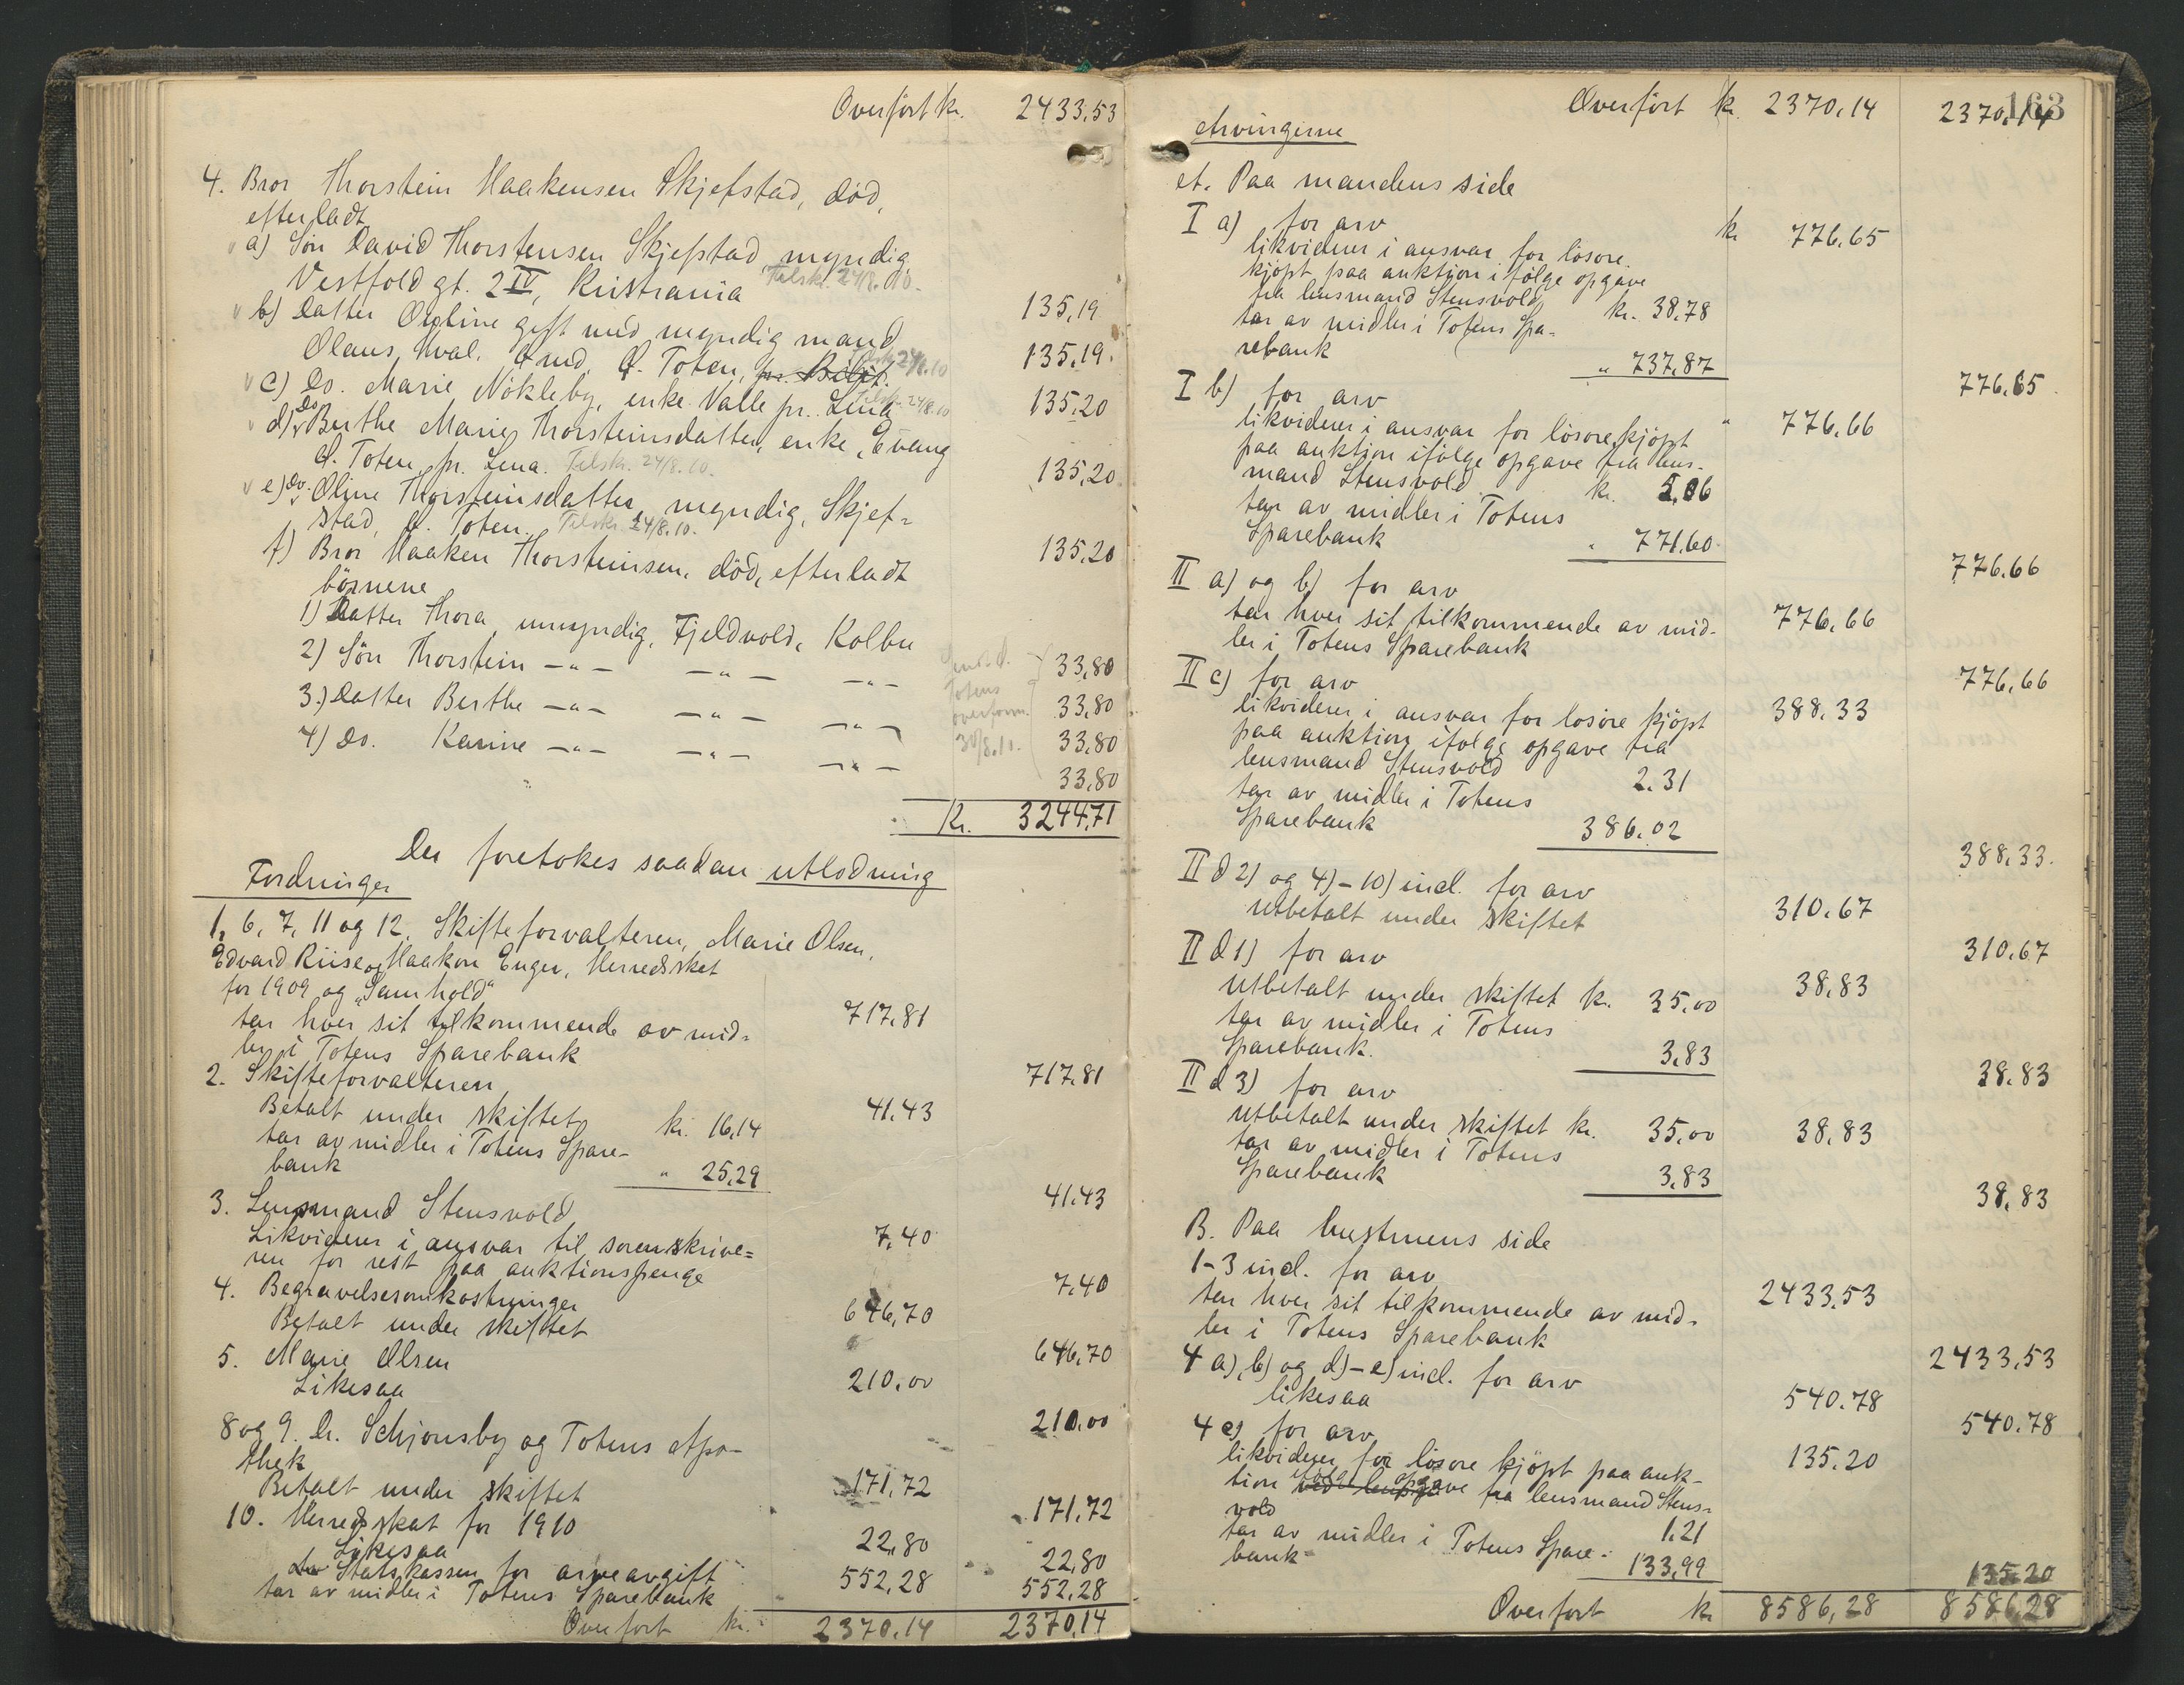 Overført kr. 2433,53
4. Bror Thorstein Haakensen Skjefstad, död,
efterladt
a) Sön David Thorstensen Skjefstad myndig
Vestfold gt. 2 IV, Kristiania Tilskr. 24/8.10. 135,19
b) Datter Oline gift med myndig mand
Olaus Hval, Ö. Toten, pr. Bilit. 24/8.10 135,19.
c) Do. Marie Nökleby, enke Valle pr. Lena Tilskr. 24/8.10 135,20
d) Do Berthe Marie Thorsteinsdatter, enke, Evang
Ö. Toten, pr. Lena. Tilskr. 24/8.10. 135,20
e) Do. Oline Thorsteinsdatter, myndig, Skjef-
stad, Ö. Toten. Tilskr. 24/8.10. 135,20
f) Bror Haaken Thorsteinsen, död, efterladt
börnene
1) Datter Thora, umyndig, Fjeldvold, Kolbu 33,80
2) Sön Thorstein -"- -"- -"- 33,80
3.) Datter Berthe -"- -"- -"- 33,80
4) Do. Karine -"- -"- -"- 33,80
Totens
overform.
30/8.10.
Kr. 3244,71
Der foretokes saadan utlodning
Fordringer
1, 6, 7, 11 og 12. Skifteforvalteren, Marie Olsen,
Edvard Riise og Haakon Enger, Herredsskat
for 1909 og "Samhold" 717,81
tar hver sit tilkommende av mid-
ler i Totens Sparebank 717,81
2. Skifteforvalteren 41,43
Betalt under skiftet kr. 16,14
tar av midler i Totens Spare-
bank " 25,29 41,43
3. Lensmand Stensvold 7,40
Likviderer i ansvar til sorenskrive-
ren for rest paa auktionspenge 7,40
4. Begravelsesomkostninger 646,70
Betalt under skiftet 646,70
5. Marie Olsen 210,00
Likesaa 210,00
8 og 9. Dr. Schjønsby og Totens Apo-
thek 171,72
Betalt under skiftet 171,72
10. Herredsskat for 1910 22,80
Likesaa 22,80
Statskassen for arveavgift 552,28
tar av midler i Totens Sparebank 552,28
Overført kr. 2370,14 2370,14
163
Overført kr. 2370,14 2370,14
Arvingerne
A. Paa mandens side
I a) for arv kr 776,65
likviderer i ansvar for lösöre
kjöpt paa auktion i fölge opgave
fra lensmand Stensvold kr. 38,78
tar av midler i Totens Spa-
rebank " 737,87 776,65
I b) for arv " 776,66
likviderer i ansvar for lösöre kjöpt
paa auktion ifölge opgave fra lens-
mand Stensvold kr. 5,06
tar av midler i Totens
Sparebank " 771,60 776,66
II a) og b) for arv 776,66
tar hver sit tilkommende av mid-
ler i Totens Sparebank 776,66
II c) for arv 388,33
likviderer i ansvar for lösöre kjöpt
paa auktion ifölge opgave fra
lensmand Stensvold 2.31
tar av midler i Totens
Sparebank 386.02 388,33.
II d 2) og 4)-10) incl. for arv 310.67
Utbetalt under skiftet 310,67
II d 1) for arv 38,83
Utbetalt under skiftet kr. 35,00
tar av midler i Totens
Sparebank. 3,83 38.83
II d 3) for arv 38,83
Utbetalt under skiftet kr. 35,00
tar av midler i Totens
Sparebank 3,83 38,83
B. Paa hustruens side
1-3 incl. for arv 2433,53
tar hver sit tilkommende av mid-
ler i Totens Sparebank 2433,53
4 a), b) og d)-e) incl. for arv 540.78
likesaa 540.78
4 c) for arv 135.20
likviderer for lösöre kjöpt paa auk-
tion ifölge opgave fra lensmand Stens-
vold 1.21
tar av midler i Totens Spare-
bank 133,99 135,20
Overført kr 8586,28 8586,28